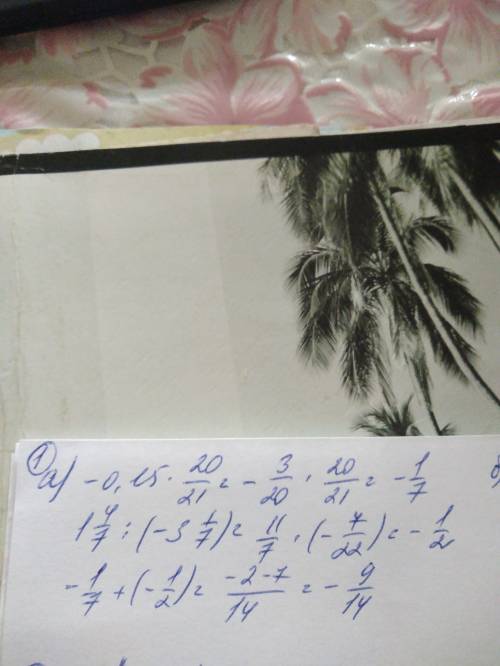 ① а) -0,15 · 20/21 = - 3/20 · 20/21 = - 1/7
1 4/7 : (-3 1/7) = 11/7 · (- 7/22) = - 1/2
- 1/7 + (- 1/2) = -2-7/14 = - 9/14